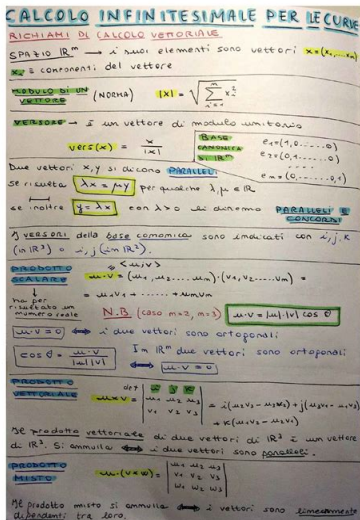 CALCOLO INFINITESIMALE PER LE CURVE
RICHIAMI DI CALCOLO VETTORIALE
SPAZIO ℝᵐ → i suoi elementi sono vettori x=(x₁,...,xₘ)
xᵢ = componenti del vettore
MODULO DI UN VETTORE (NORMA) |x| = √(∑ᵢ₌₁ᵐ xᵢ²)
VERSORE → È un vettore di modulo unitario
vers(x) = x/|x|
BASE CANONICA DI ℝᵐ
e₁=(1,0,.....0)
e₂=(0,1,.....0)
eₘ=(0,.....0,1)
Due vettori x,y si dicono PARALLELI
se risulta λx = μy per qualche λ,μ ∈ ℝ
se inoltre y = λx con λ>0 si diranno PARALLELI E CONCORDI
I VERSORI della base canonica sono indicati con i,j,k
(in ℝ³) o i,j (in ℝ²).
PRODOTTO SCALARE
<u,v>
u·v = (u₁,u₂.....uₘ)·(v₁,v₂....vₘ) =
= u₁v₁ + ...... + uₘvₘ
ha per risultato un numero reale
N.B (caso m=2, m=3) u·v = |u|·|v| cos θ
u·v = 0 ⟺ i due vettori sono ortogonali
cos θ = u·v/|u||v|
In ℝᵐ due vettori sono ortogonali
⟺ u·v = 0
PRODOTTO VETTORIALE
u×v = det
i j k
u₁ u₂ u₃
v₁ v₂ v₃
= i(u₂v₃-u₃v₂)+j(u₃v₁-u₁v₃)
+k(u₁v₂-u₂v₁)
Il prodotto vettoriale di due vettori di ℝ³ è un vettore
di ℝ³. Si annulla ⟺ i due vettori sono paralleli.
PRODOTTO MISTO
u·(v×w) =
u₁ u₂ u₃
v₁ v₂ v₃
w₁ w₂ w₃
Il prodotto misto si annulla ⟺ i vettori sono linearmente
dipendenti tra loro.